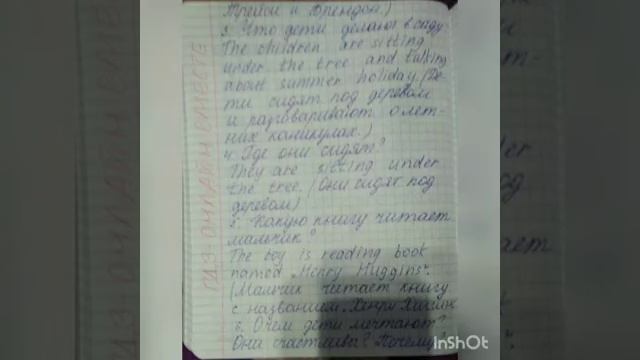 Трейси и Брендой.)
3. Что дети делают в саду
The children are sitting
under the tree and talking
about summer holiday. (Де-
ти сидят под деревом
и разговаривают о лет-
них каникулах.)
4. Где они сидят?
They are sitting under
the tree. (Они сидят под
деревом)
5. Какую книгу читает
мальчик?
The boy is reading book
named „Henry Huggins".
(Мальчик читает книгу
с названием „Хенри
6. О чем дети мечтают?
Они счастливы? Почему?
ГДЗ-ОНЛАЙН ВМЕСТЕ
InShOt